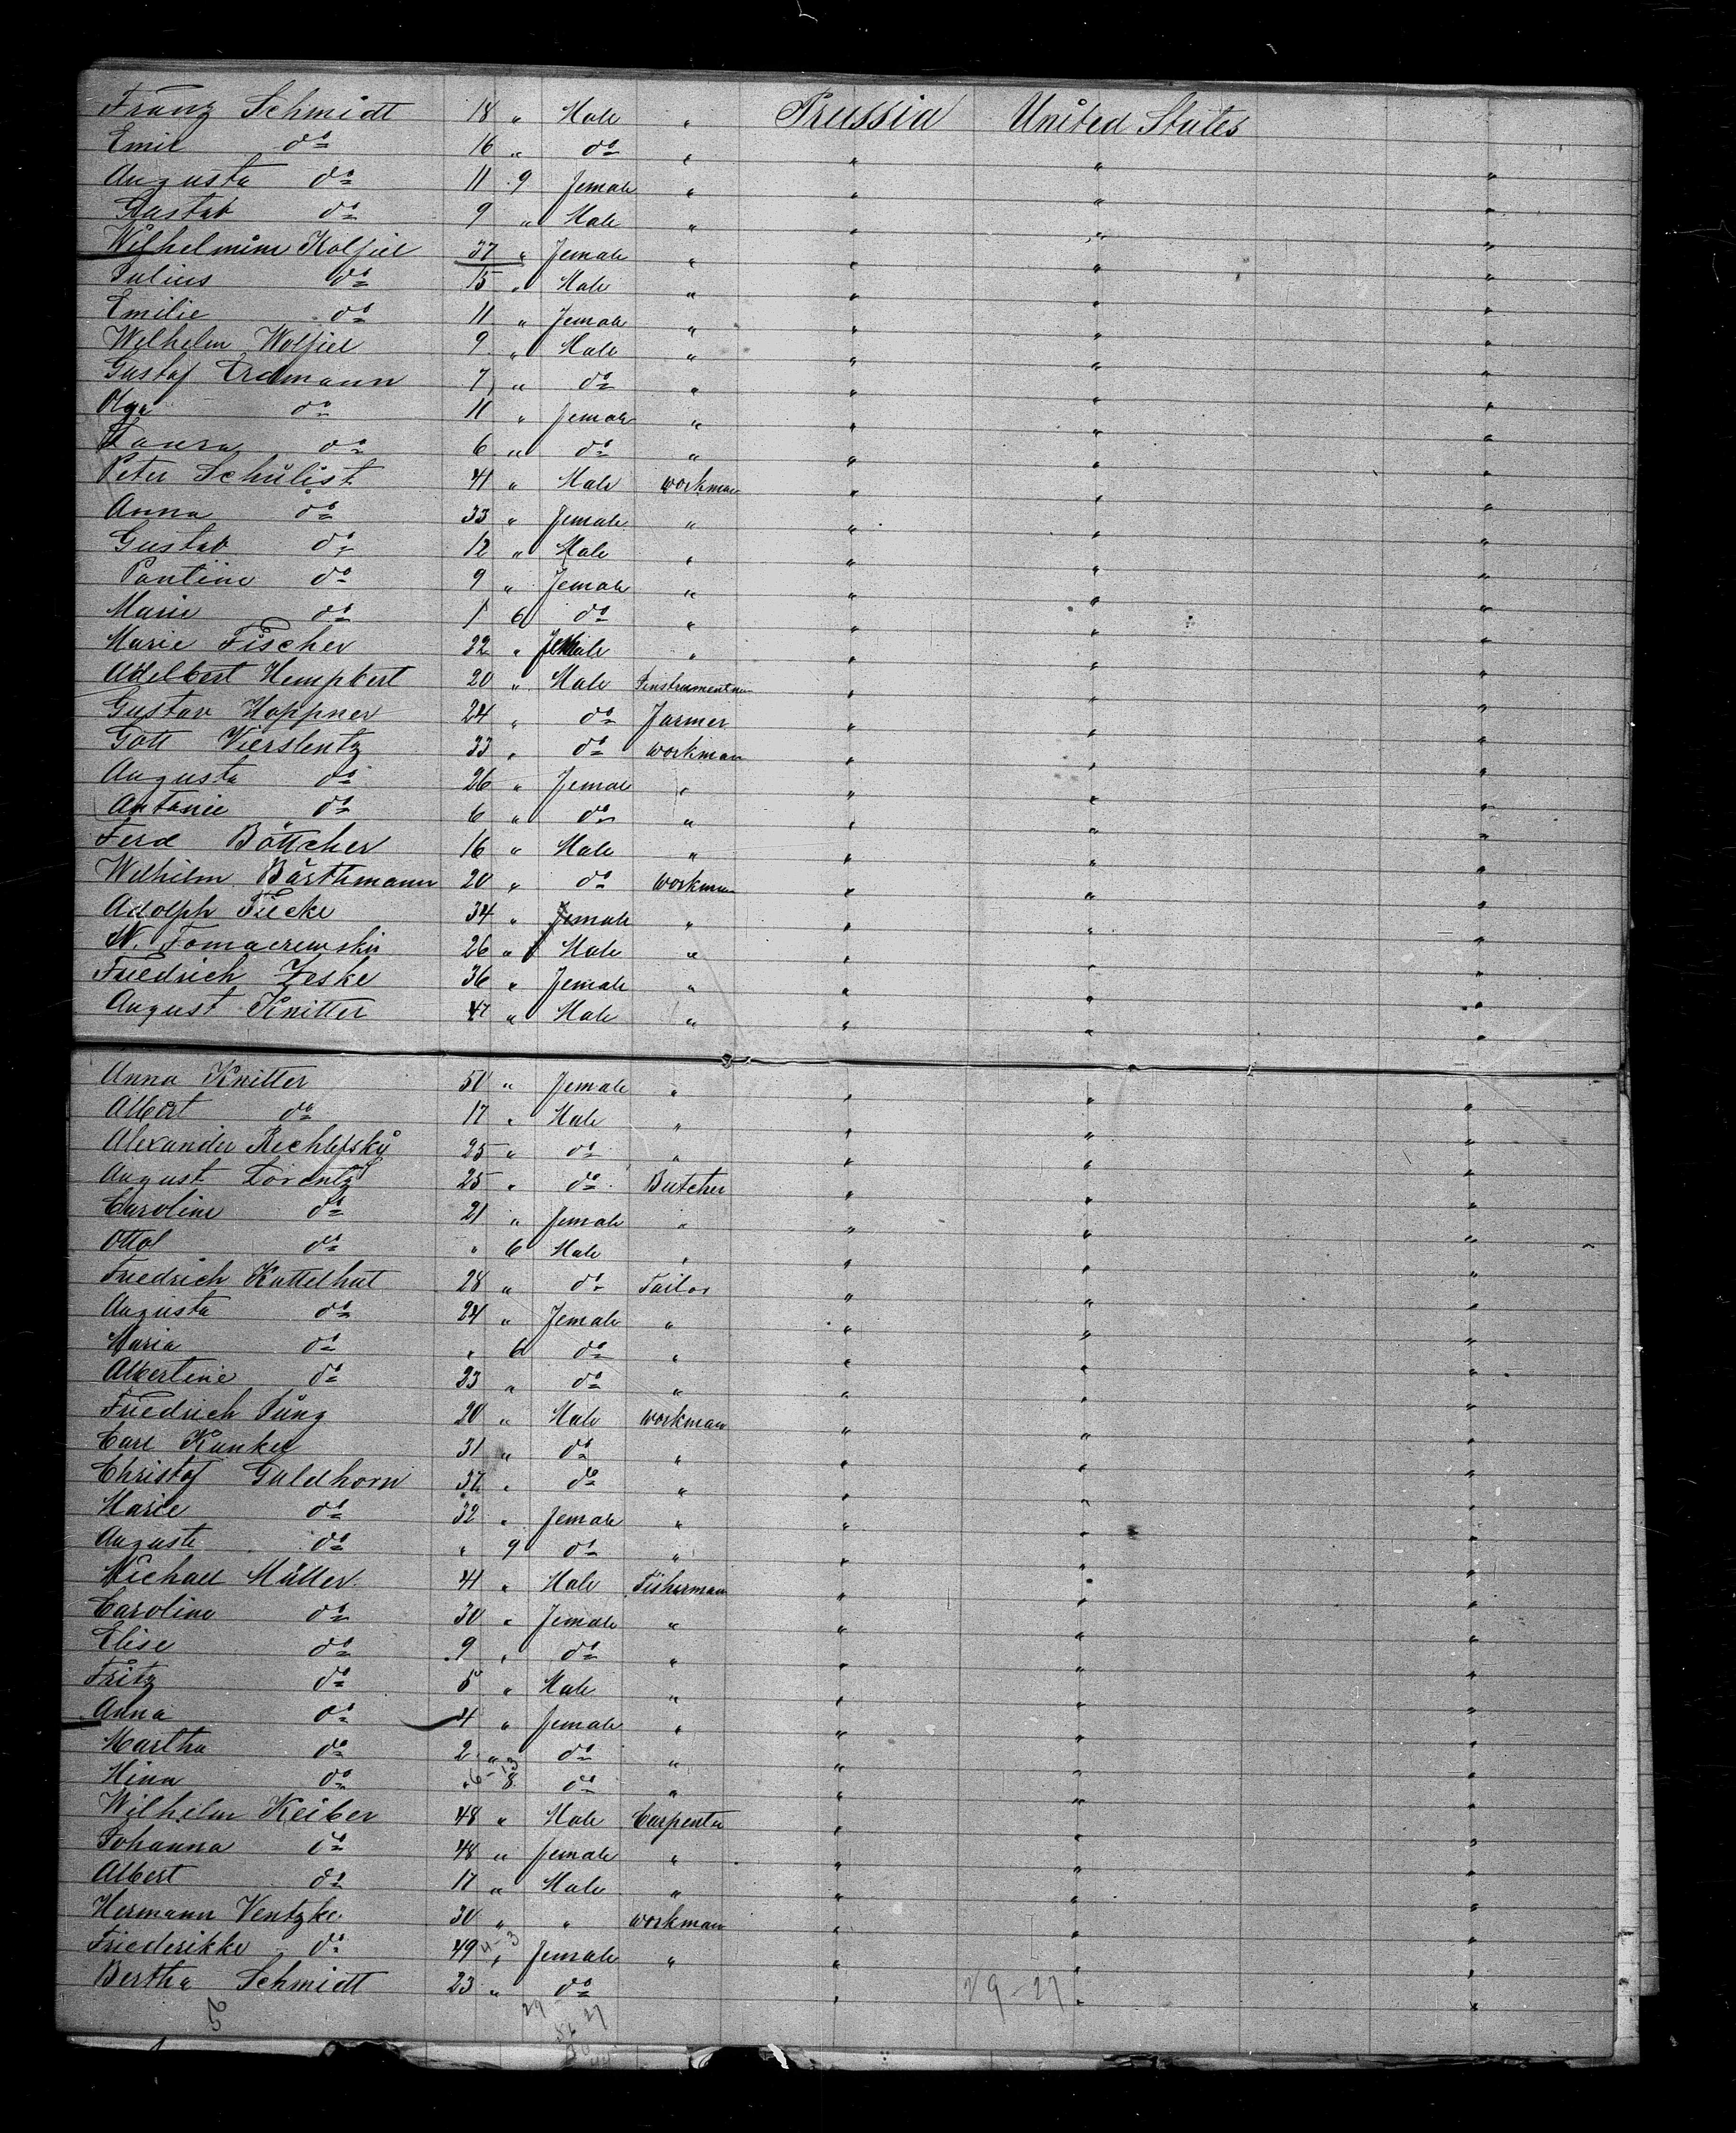 Franz Schmidt 18 " Male " Prussia United States
Emil do 16 " do " " " "
Augusta do 11 9 female " " " "
Gustav do 9 " Male " " " "
Wilhelmine Kolfiel 37 " female " " " "
Julius do 15 " Male " " " "
Emilie do 11 " female " " " "
Wilhelm Wolfiel 9 " Male " " " "
Gustaf Erdmann 7 " do " " " "
Olga do 11 " female " " " "
Laura do 6 " do " " " "
Peter Schülist 41 " Male workman " " "
Anna do 33 " female " " " "
Gustav do 12 " Male " " " "
Pantiine do 9 " female " " " "
Marie do 1 6 do " " " "
Marie Fischer 22 " female " " " "
Adelbert Hempbert 20 " Male " " "
Gustav Hoppner 24 " do Farmer " " "
Gott Vierslentz 33 " do workman " " "
Augusta do 26 " female " " " "
Antonie do 6 " do " " " "
Ferd Böttcher 16 " Male " " " "
Wilhilm Bärthmann 20 " do workman " " "
Adolph Tiecke 34 " female " " " "
N. Tomacrewskie 26 " Male " " " "
Friedrich Zeske 36 " female " " " "
August Knitter 47 " Male " " " "
Anna Knitter 50 " female " " " "
Albert do 17 " Male " " " "
Alexander Rechlefsky 25 " do " " " "
August Lorentz 25 " do Butcher " " "
Caroline do 21 " female " " " "
Otto do " 6 Male " " " "
Friedrich Kuttelhut 28 " do Tailor " " "
Augusta do 24 " female " " " "
Maria do " 6 do " " " "
Albertine do 23 " do " " " "
Friedrich Jung 20 " Male workman " " "
Carl Kunkel 31 " do " " " "
Christof Guldhorn 37 " do " " " "
Marie do 32 " female " " " "
Auguste do " 9 do " " " "
Michael Müller 41 " Male Fisherman " " "
Caroline do 30 " female " " " "
Elise do 9 " do " " " "
Fritz do 5 " Male " " " "
Anna do 4 " female " " " "
Martha do 2 " do " " " "
Minn do " 8 do " " " "
Wilhilm Keiber 48 " Male Carpenter " " "
Johanna do 48 " female " " " "
Albert do 17 " Male " " " "
Hermann Ventzke 30 " " workman " " "
Friederikke do 49 " female " " " "
Bertha Schmidt 23 " do " " "
29-27